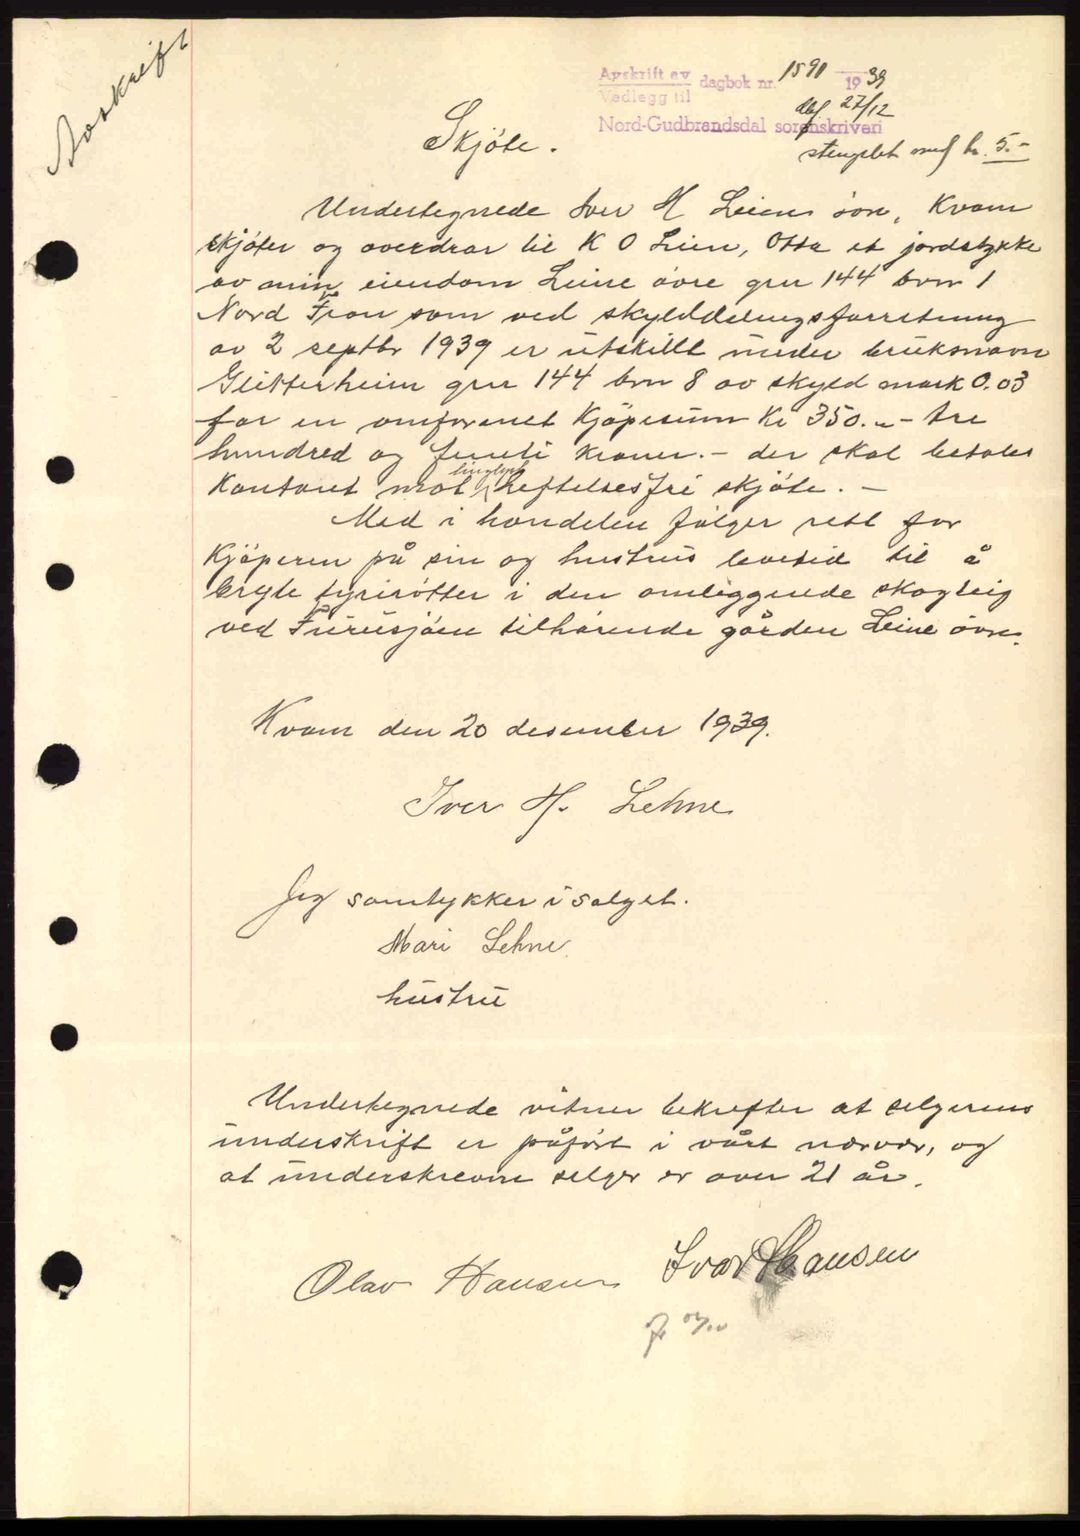 Avskrift
Avskrift av
Vedlegg til
dagbok nr. 1590 1939
27/12
Nord-Gudbrandsdal sorenskriveri
stemplet med kr. 5.-
Skjøte.
Undertegnede Iver H Leine øvre, Kvam
skjøter og overdrar til K O Leine, Otta et jordstykke
av min eiendom Leine øvre gnr 144 bnr 1
Nord Fron som ved skylddelingsforretning
av 2 septbr 1939 er utskillt under bruksnavn
Glitterheim gnr 144 bnr 8 av skyld mark 0.03
for en omforenet kjøpesum Kr 350.- tre
hundred og femti kroner.- der skal betales
kontant mot tinglyst heftelsesfri skjøte. -
Med i handelen følger rett for
kjøperen på sin og hustrus levetid til å
bryte tyrirøtter i den omliggende skogteig
ved Furusjøen tilhørende gården Leine øvre.
Kvam den 20 desember 1939.
Iver H. Lehne
Jeg samtykker i salget.
Mari Lehne
hustru
Undertegnede vitner bekrefter at selgerens
underskrift er påført i vårt nærvær, og
at underskrevne selger er over 21 år.
Olav Hansen Ivar Hansen